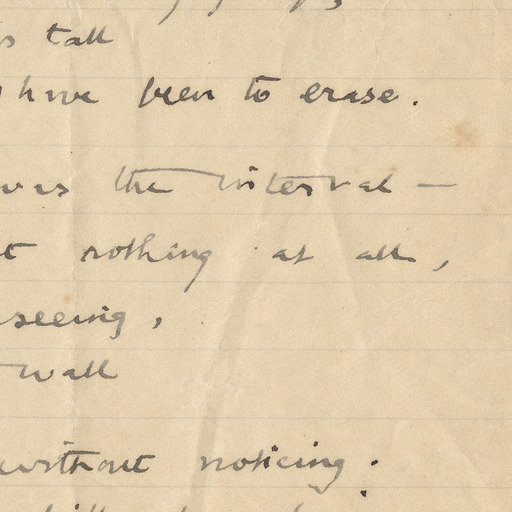 tall
have been to erase.
was the interval —
nothing at all,
seeing,
wall
without noticing.